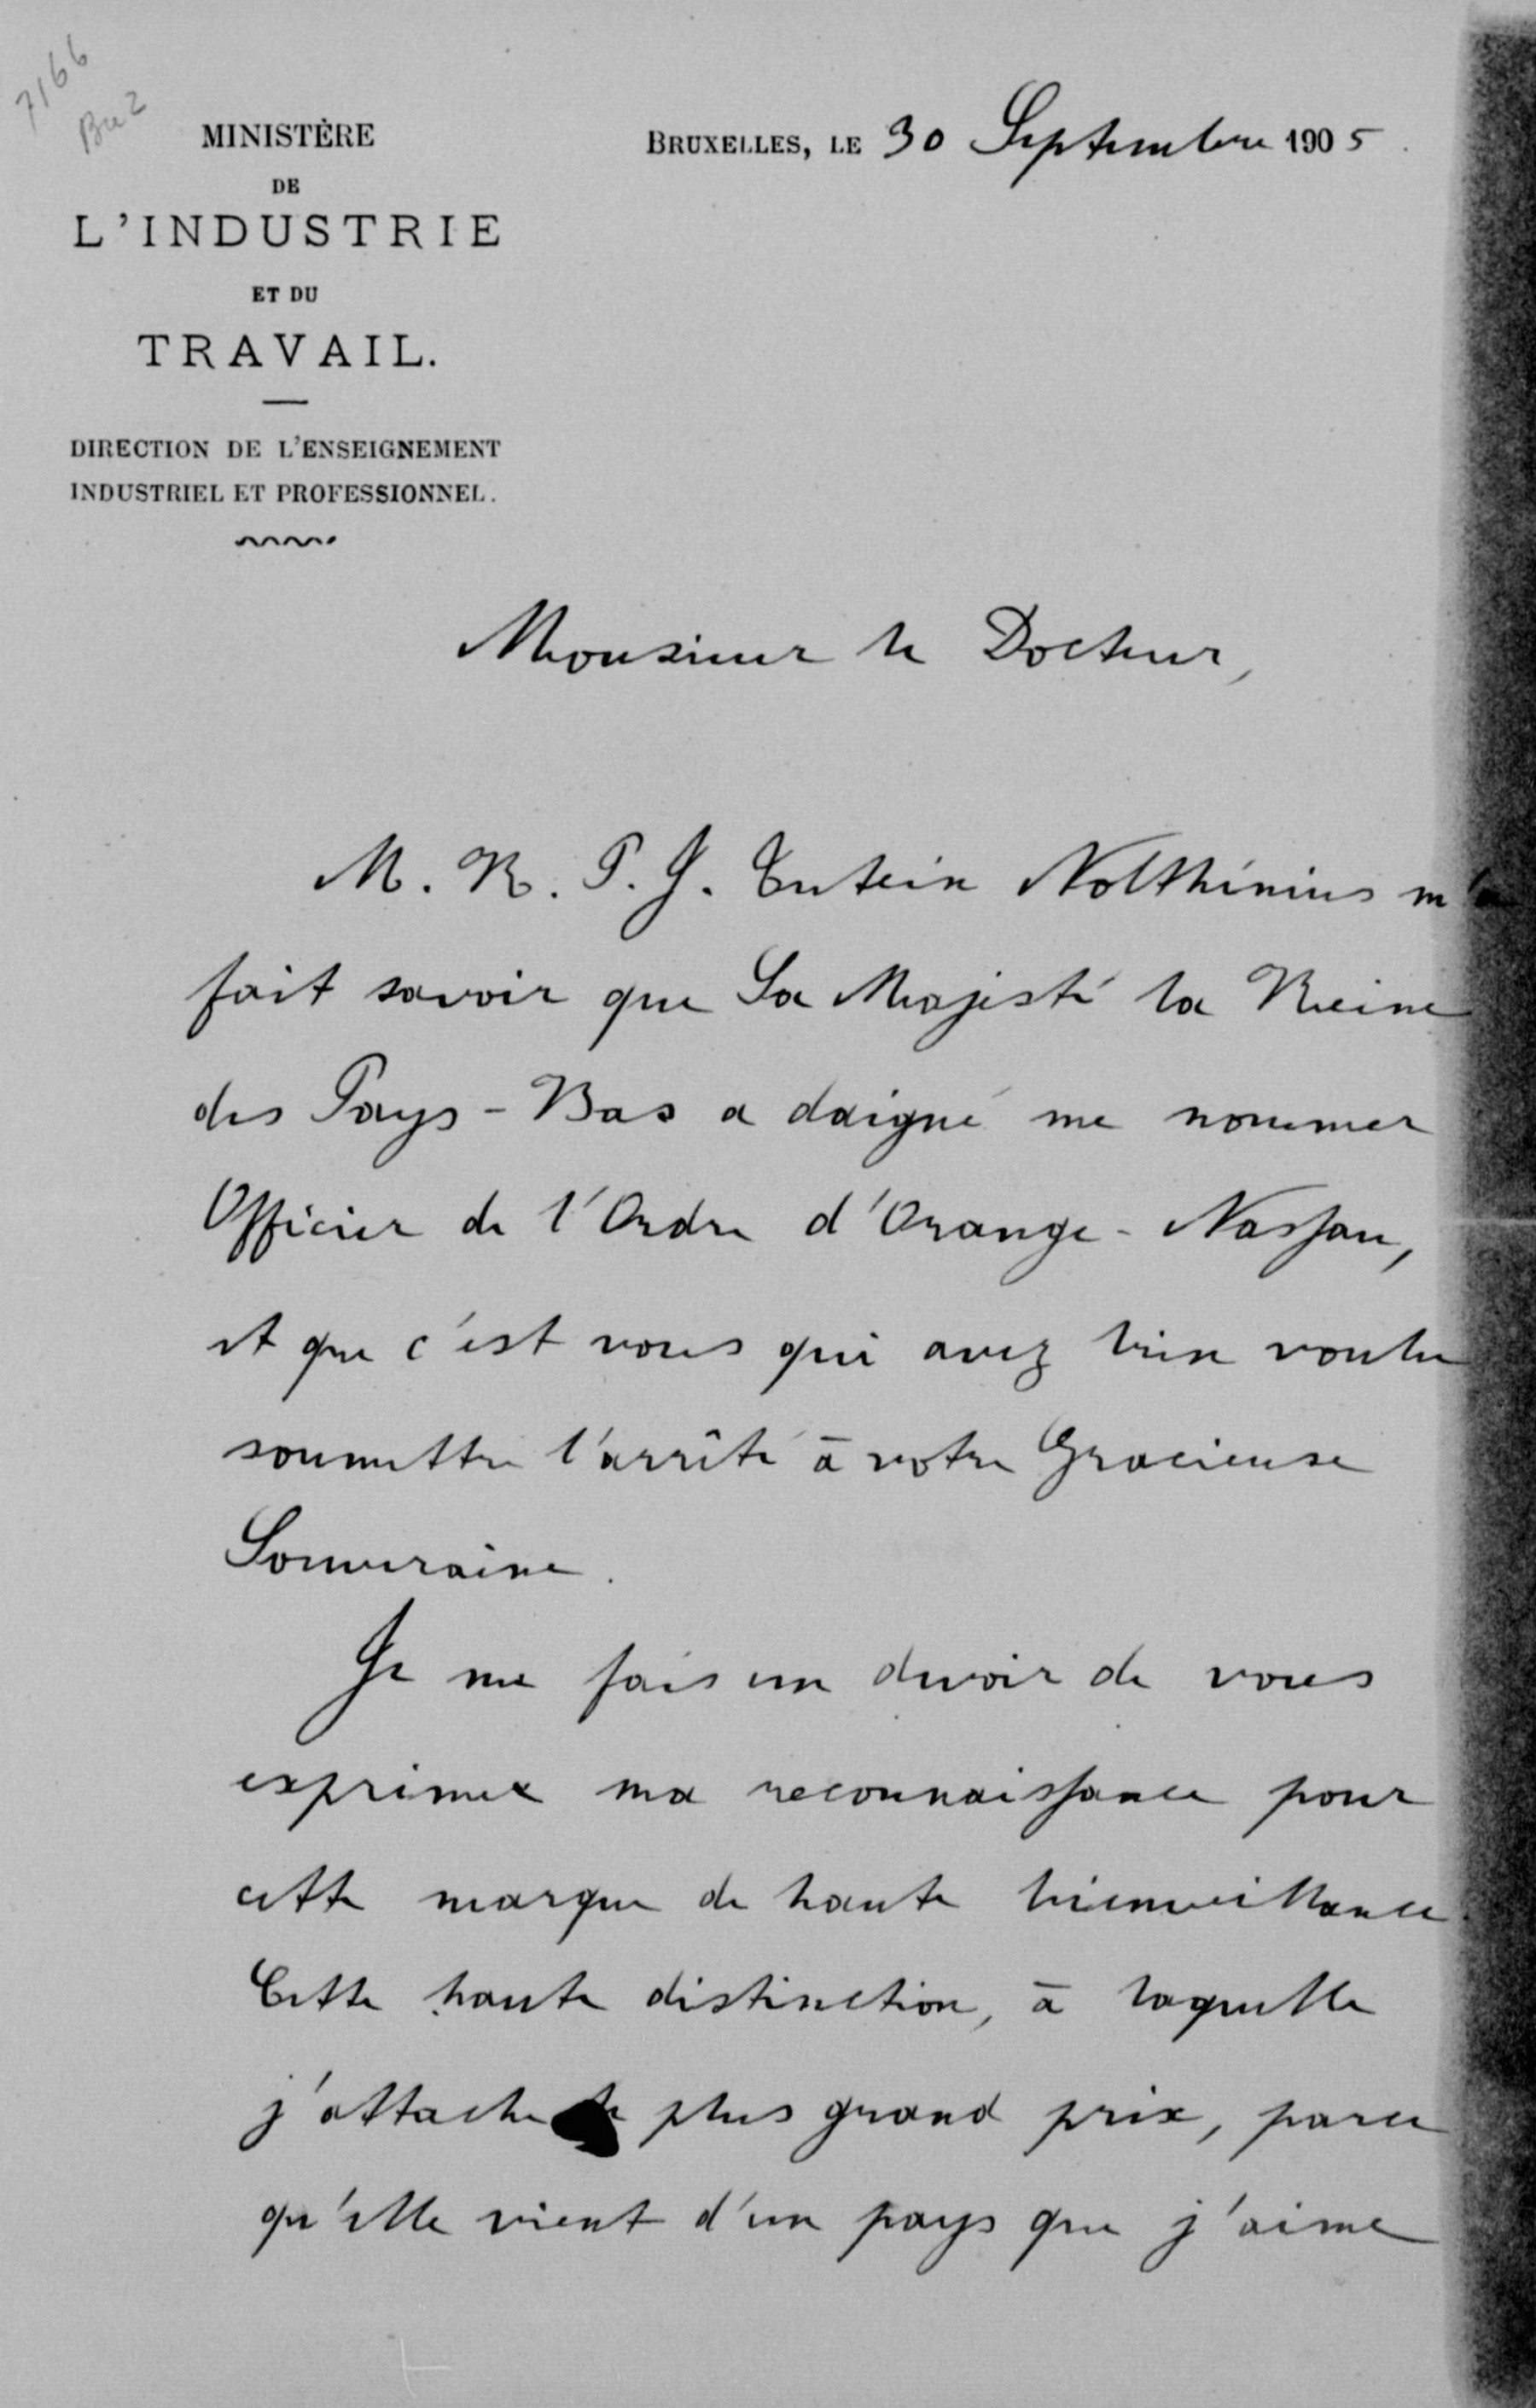 7166
Bu2
MINISTÈRE
DE
L'INDUSTRIE
ET DU
TRAVAIL.
DIRECTION DE L'ENSEIGNEMENT
INDUSTRIEL ET PROFESSIONNEL.
BRUXELLES, LE 30 Septembre 1905.
Monsieur le Docteur,
M. R. P. J. Tutein Nolthénius m'a
fait savoir que Sa Majesté la Reine
des Pays-Bas a daigné me nommer
Officier de l'Ordre d'Orange-Nassau,
et que c'est vous qui avez bien voulu
soumettre l'arrêté à votre Gracieuse
Souveraine.
Je me fais un devoir de vous
exprimer ma reconnaissance pour
cette marque de haute bienveillance.
Cette haute distinction, à laquelle
j'attache le plus grand prix, parce
qu'elle vient d'un pays que j'aime